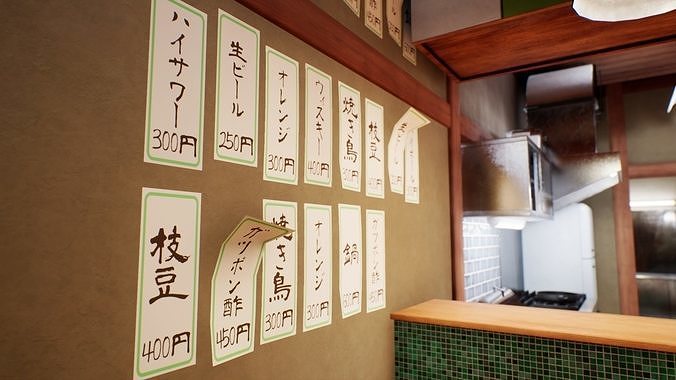 ハイサワー
300円
生ビール
250円
オレンジ
300円
ウィスキー
400円
焼き鳥
300円
枝豆
400円
枝豆
400円
ガツポン酢
450円
焼き鳥
300円
オレンジ
300円
鍋
ガツポン酢
450円